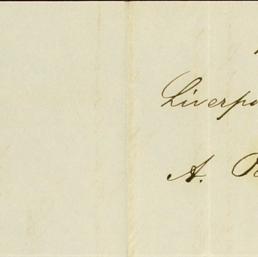 Liverpo
A.